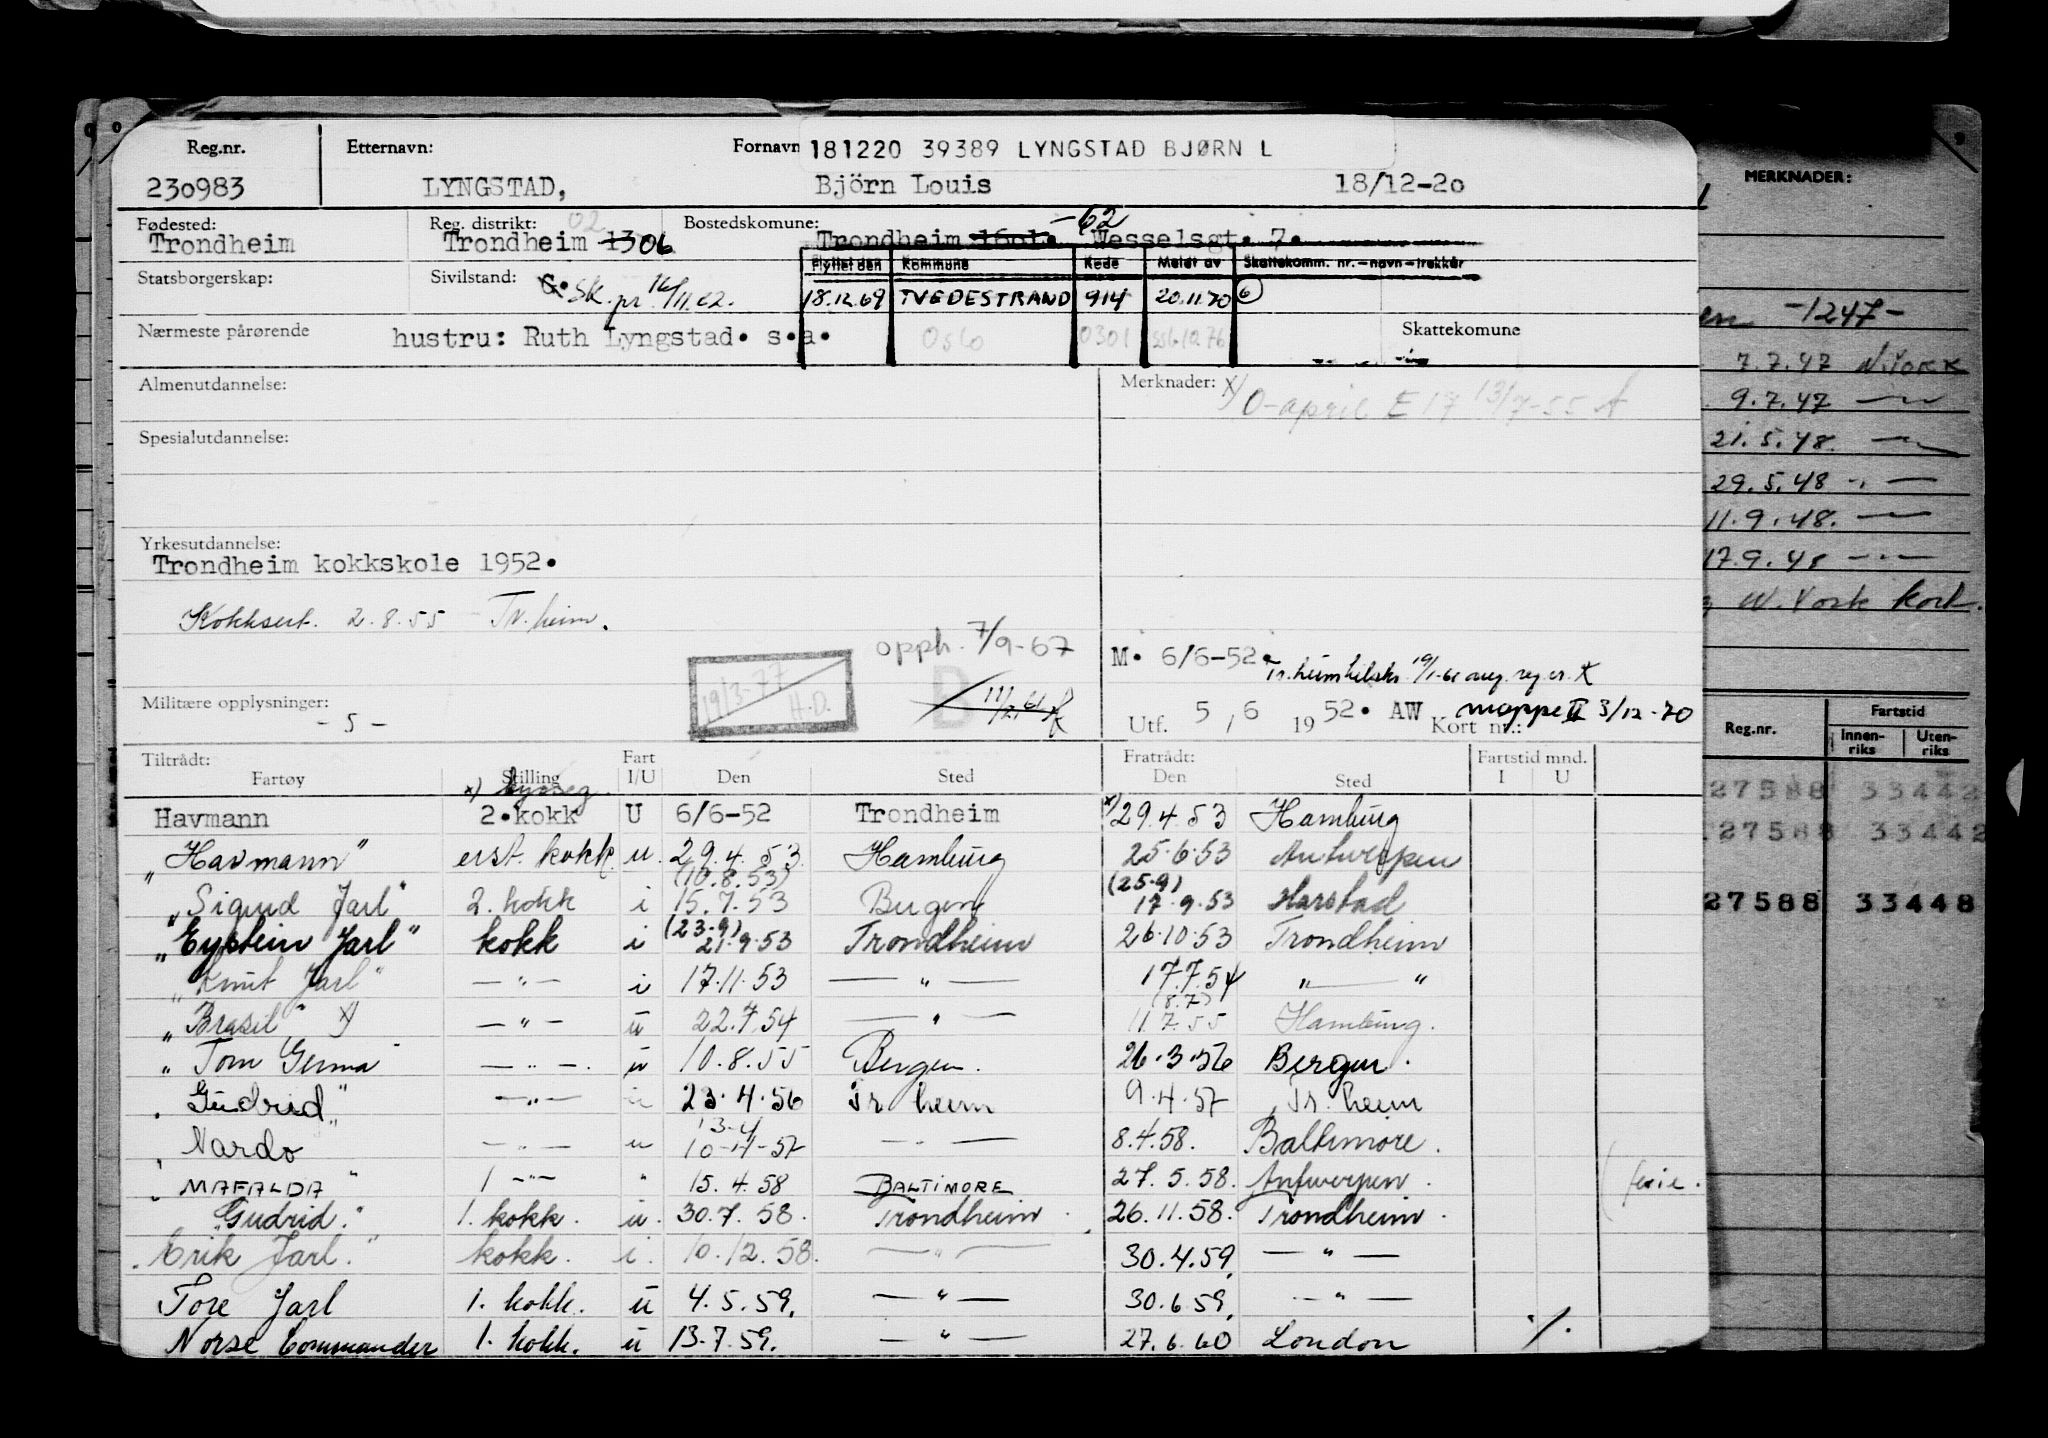 Reg.nr. Etternavn: Fornavn 181220 39389 LYNGSTAD BJØRN L
230983 LYNGSTAD, Björn Louis 18/12-20
MERKNADER:
Fødested: Reg. distrikt: 02 Bostedskomune: -62
Trondheim Trondheim 1306 Trondheim 1601. Wesselsgt. 7.
Flyttet den Kommune Kode Meldt av Skattekomm. nr.-navn-trekkår
Statsborgerskap: Sivilstand: G. Sk. pr 16/11.62. 18.12.69 TVEDESTRAND 914 20.11.70 6
Nærmeste pårørende hustru: Ruth Lyngstad. s.a. Oslo 0301 Skattekomune
-1247-
7.7.47 N.YORK
Almenutdannelse: Merknader: x) O-april E 17 13/7-55
9.7.47 —"—
Spesialutdannelse:
21.5.48. —"—
29.5.48 —"—
11.9.48. —"—
Yrkesutdannelse:
Trondheim kokkskole 1952.
17.9.48 —"—
Kokksert. 2.8.55 - Tr.heim.
N.York kort.
opph. 7/9-67
M. 6/6-52.
19/3-77 H.D.
D
Militære opplysninger: - 5 -
Utf. 5, 6 1952. AW Kort nr.: mappe II 3/12-70
Reg.nr. Fartstid
Innen-riks Uten-riks
Tiltrådt: Fart Fratrådt: Fartstid mnd.
Fartøy Stilling I/U Den Sted Den Sted I U
x) bysseg.
Havmann 2.kokk U 6/6-52 Trondheim x) 29.4.53 Hamburg
27588 33442
"Havmann" erst. kokk u. 29.4.53 Hamburg 25.6.53 Antwerpen
27588 33442
(10.8.53) (25.9)
"Sigurd Jarl" 2. kokk i 15.7.53 Bergen 17.9.53 Harstad
27588 33448
(23.9)
"Eystein Jarl" kokk i 21.9.53 Trondheim 26.10.53 Trondheim
"Knut Jarl" —"— i 17.11.53 —"— 17.7.54 "—"
(8.7)
"Brasil" x) —"— u 22.7.54 —"— 11.7.55 Hamburg.
"Tom Gerina" —"—. u 10.8.55 Bergen. 26.3.56 Bergen.
"Gudrid" —"— i 23.4.56 Tr heim 9.4.57 Tr. heim
13-4
"Nardo —"— u 10-4-57 —"— 8.4.58. Baltimore.
"MAFALDA" 1 —"— " 15.4.58 BALTIMORE 27.5.58. Antwerpen. ferie.
"Gudrid." 1. kokk. u. 30.7.58. Trondheim. 26.11.58. Trondheim.
"Erik Jarl." kokk. i. 10.12.58. —"— 30.4.59. —"—
Tore Jarl 1. kokk. u 4.5.59. —"— 30.6.59. —"—
Norse Commander 1. kokk. u 13.7.59. —"— 27.6.60 London